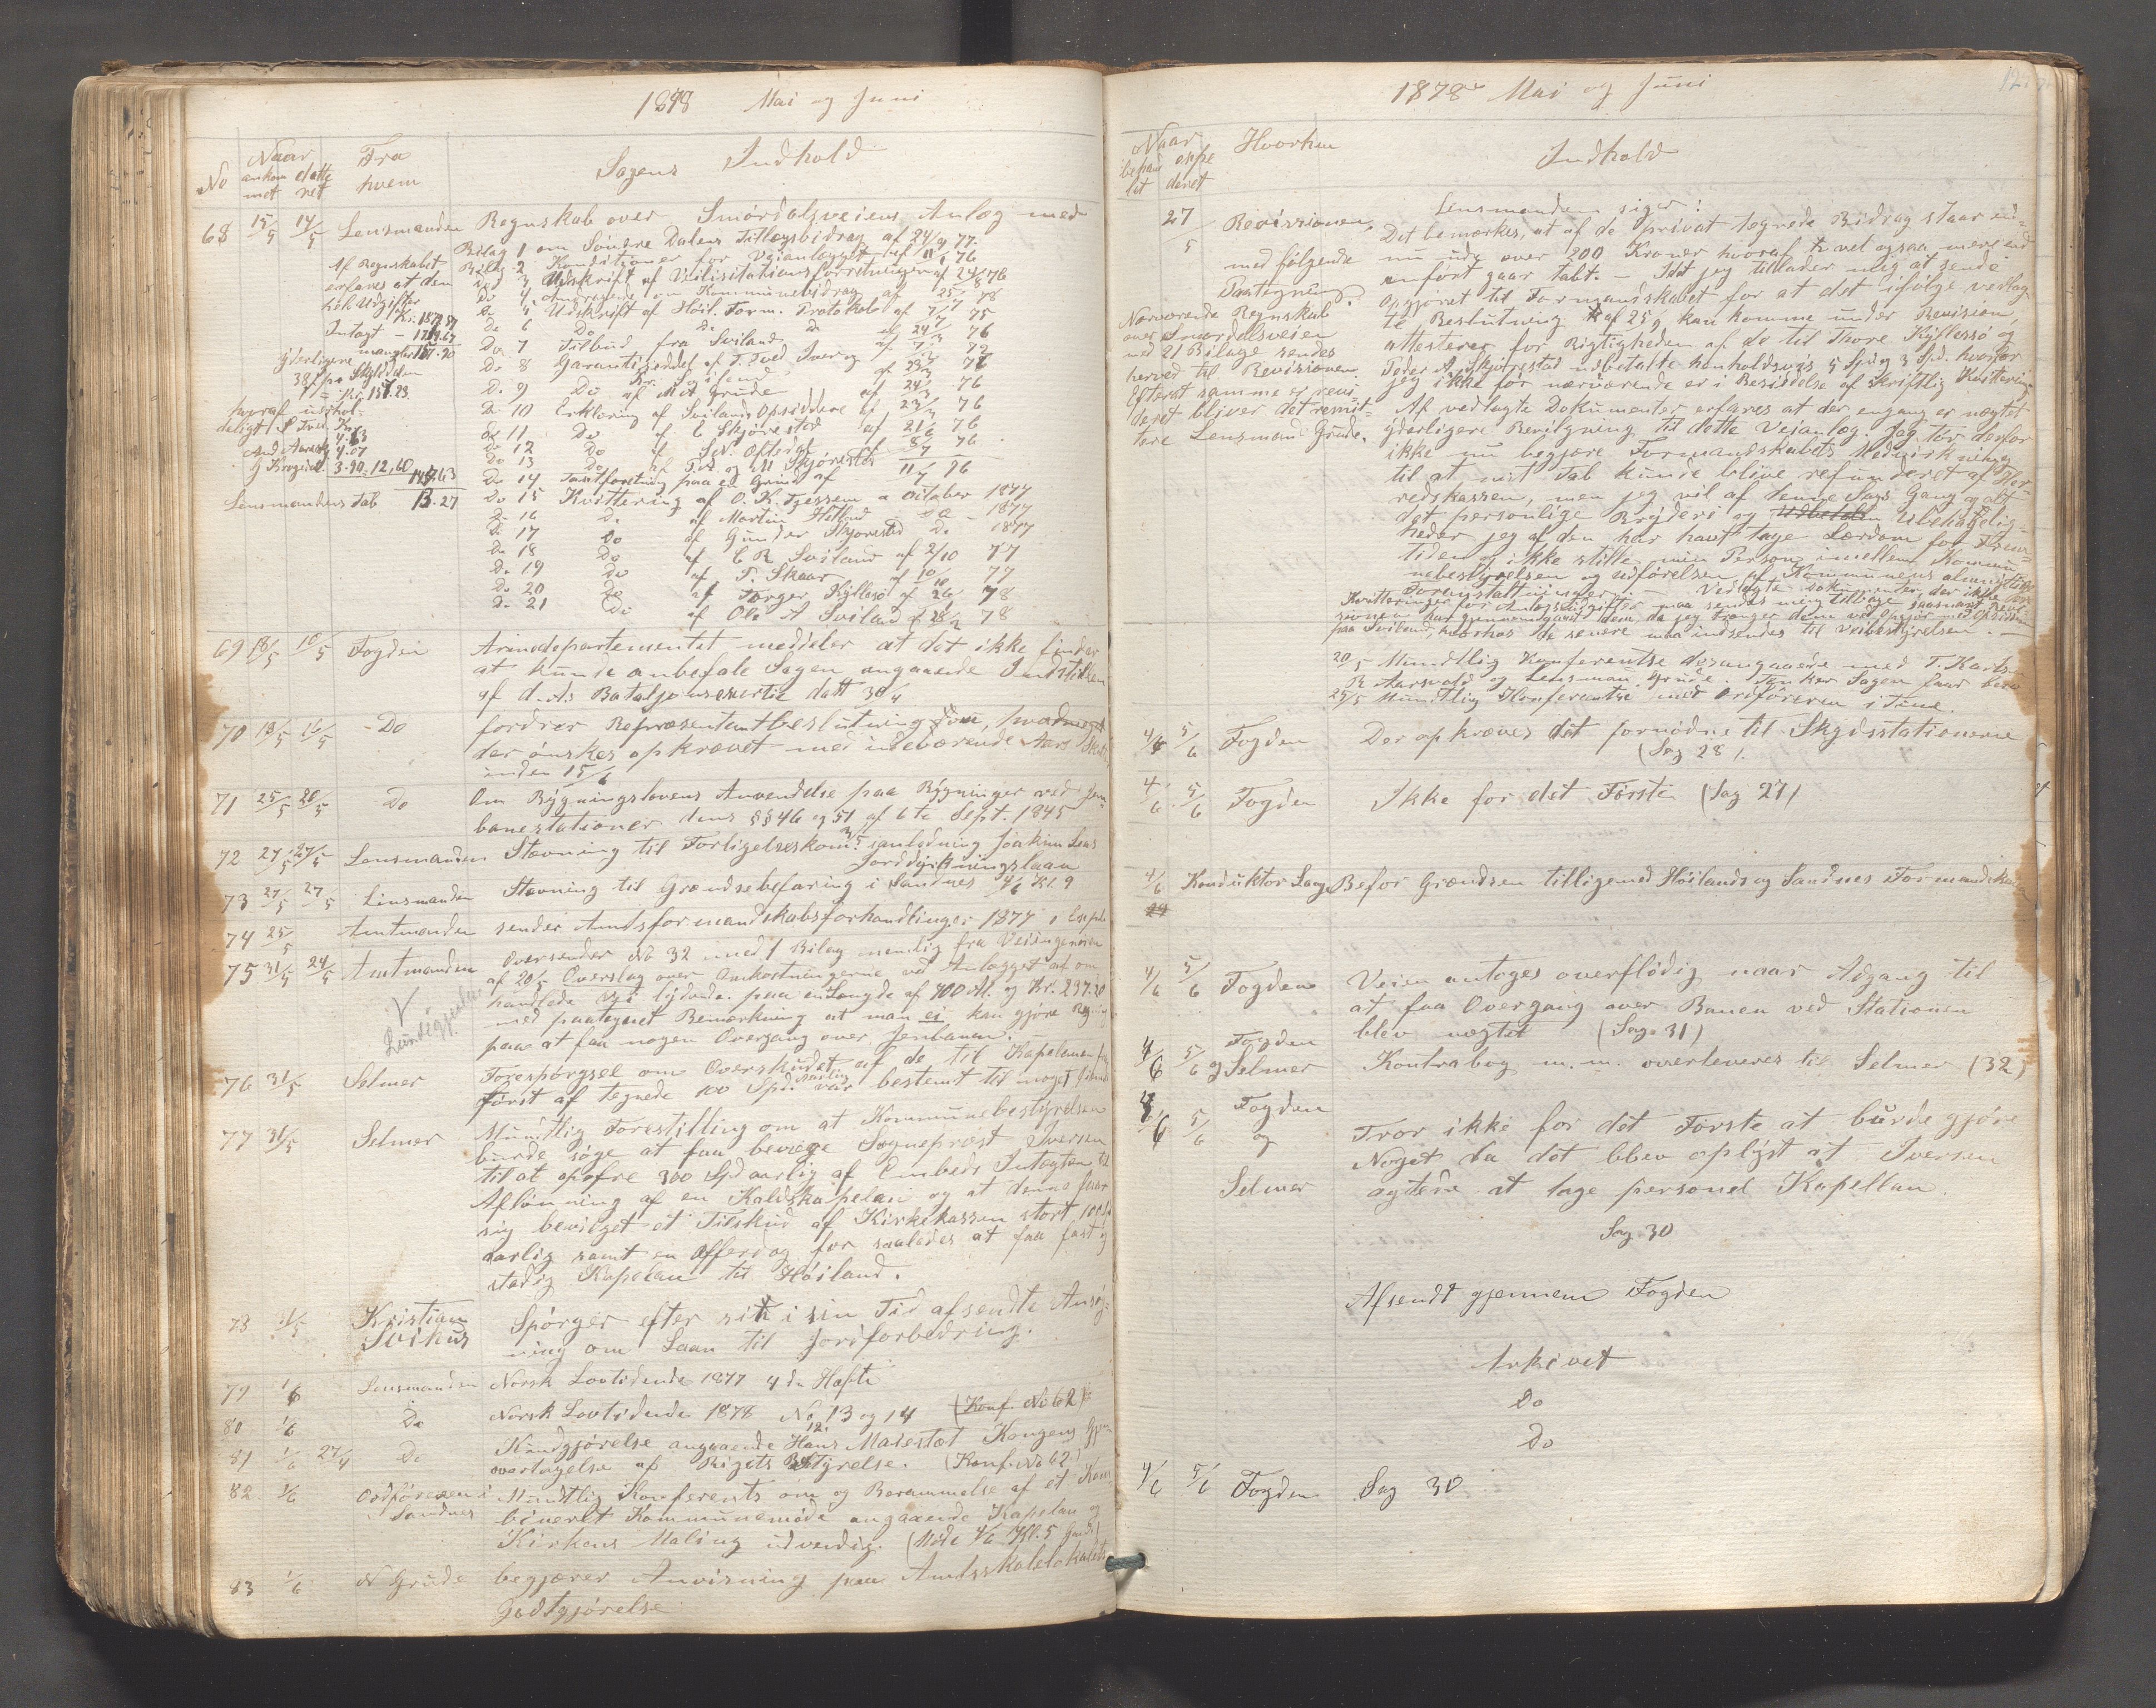 1878 Mai og Juni
No Naar ankommet dattert Fra hvem Sagens Indhold
68 15/5 14/5 Lensmanden Regnskab over Smördalsveiens Anlæg med
Bilag 1 om Söndre Dalens Tillægsbidrag af 24/9 77.
Af Regnskabet Bilag 2 Konditioner for Veianlægget af 11/1 76
erfares at den Do 3 Udskrift af Veilisitationsforretningen af 24/8 76
hele Udgifter Do 4 Angaaende om Kommunebidrag af 25/ 78
Kr. 1870.87 Do 5 Udskrift af Höil. Form. Protokol af 7/7 75
Intægt - Do 6 Do Do Do af 24/ 76
mangler 157.20 Do 7 Tilbud fra Sviland af 7/3 76
yderligere Do 8 Garantiseddel af T. Tved, Iver og af 23/3 76
38 ß pr Skylddaler
= Kr. 157.23 Do 9 Do af M A Grude af 24/3 76
hvoraf uerhol- Do 10 Erklæring af Svilands Opsiddere af 23/3 76
deligt S Tved Kr. 4.63 Do 11 Do af E Skjörestad af 21/6 76
And. Aarsv. 4.07 Do 12 Do af Sev. Oftedal af 8/7 76
G Krogedal 3.90 = 12,60 Do 13 Do af T.A. og M Skjörestad
144.63 Do 14 Tastforetning paa en Grind af 11/7 76
Lensmandens Tab 13.27 Do 15 Kvittering af O. K. Tjessem a October 1877
Do 16 Do af Martin Hetland - Do - 1877
Do 17 Do af Gunder Skjörestad Do 1877
Do 18 Do af E R Sviland af 2/10 77
Do 19 Do af T. Skaar af 10/ 77
Do 20 Do af Torger Kyllesö af 26/ 78
Do 21 Do af Ole A Sviland af 28/2 78
69 18/5 10/5 Fogden Armedepartementet meddeler at det ikke finder
at kunde anbefale Sagen angaaende Indstillken
af d. A.s Bataljonsexersis datt 30/4
70 18/5 16/5 - Do fordrer Repræsentantbeslutning om, hvormeget
der önskes opkrævet med indeværende Aars Skat
inden 15/6
71 25/5 20/5 Do Om Bygningslovens Anvendelse paa Bygninger ved Jern-
banestationer dens §§ 46 og 51 af 6te Sept. 1845
72 27/5 27/5 Lensmanden Stævning til Forligelseskom. 3/5 i anledning Joakim Lens
Jorddyrkningslaan
73 27/5 27/5 Linsmanden Stævning til Grændsebefaring i Sandnes 4/6 Kl. 9
74 25/5 Amtmanden sender Amtsformandskabsforhandlinger 1877, 1 Expl.
75 31/5 24/5 Amtmanden Oversender No 32 med 1 Bilag nemlig fra Veiingeniören
af 20/5 Overslag over Omkostningerne ved Anlægget af om
handlede Vei lydende paa en Længde af 700 Al. og Kr. 237.20
med paategnet Bemærkning at man ei kan gjöre Regning
paa at faa nogen Overgang over Jernbanen.
76 31/5 Selmer Forespörgsel om Overskudet af de til Kapelanen
först af tegnede 100 Spd. aarlig var bestemt til noget
77 31/5 Selmer Mundtlig Forestilling om at Kommunebestyrelsen
burde söge at faa bevæge Sogneprest Iversen
til at opofre 300 Spd aarlig af Embeds Intægten til
Aflönning af en Kaldskapelan og at denne faar
sig bevilget et Tilskud af Kirkekassen stort 100 Spd
aarlig samt en Offerdag for saaledes at faa fast og
stadig Kapelan til Höiland.
78 31/5 Kristian Svihus Spörger efter sit i sin Tid afsendte Ansög-
ning om Laan til Jordforbedring.
79 1/6 Lensmanden Norsk Lovtidende 1877 4de Hefte
80 1/6 Do Norsk Lovtidende 1878 No 12, 13 og 14 (Konf. No 62)
81 1/6 27/4 Do Kundgjörelse angaaende Hans Majestæt Kongens Gjen
overtagelse af Rigets Styrelse. (Konf. No 62)
82 1/6 Ordföreren i Sandnes Mundtlig Konferents om og Berammelse af et kom-
bineret Kommunemöde angaaende Kapelan og
Kirkens Maling udvendig. (Möde 4/6 Kl. 5 )
83 1/6 N Grude begjærer Anvisning paa Amtsskolelokalets
Godtgjörelse
1878 Mai og Juni
Naar behandlet expederet Hvorhen Indhold
27/5 Revissionen Lensmanden siger:
Det bemærkes, at af de privat tegnede Bidrag staar end-
med fölgende nu ude over 200 Kroner hvoraf tr. vet ogsaa mere end
Paategning. anfört gaar tabt. - Idet jeg tillader mig at sende
Nærværende Regnskab opgjöret til Formandskabet for at det ifölge vedtag
over Smördalsveien til Beslutning af 25/9 kan komme under Revision,
med 21 Bilage sendes attesterer for Rigtigheden af de til Thore Kyllesö og
herved til Revissionen. Peder A Skjörestad udbetalte henholdsvis 5 Spd og 3 Spd. hvorfor
Efterat samme er revi- jeg ikke for nærværende er i Besiddelse af skriftlig Kvittering.
deret bliver det remit- Af vedlagte Dokumenter erfares at der engang er nægtet
tere Lensmand Grude. yderligere Bevilgning til dette Veianlæg. Jeg tör derfor
ikke nu begjære Formandskabets Medvirkning
til at mit Tab kunde blive refunderet af Her-
redskassen, men jeg vil af denne Sags Gang og alt
det personlige Bryderi og Ubehagelig-
heder jeg af den har havt tage Lærdom for Frem-
tiden og ikke stille min Person imellem Kommu-
nebestyrelsen og Udförelsen af Kommunens almindelige
Foranstaltninger. - Vedlagte Dokumenter, der ikke er
Kvitteringer for Anlægsudgifter maa sendes mig tilbage saasnart Revi-
sionen har gjennemgaaet dem, da jeg trænger dem ved Opgjör med Opsidderne
paa Sviland, hvorhos de senere maa indsendes til Veibestyrelsen. -
20/5 Mundtlig Konferentse desangaaende med T. Karls.
R. Aarsvold og Lensman Grude. Tænker Sagen faar bero
25/5 Mundtlig Konferentse med Ordföreren i Time.
4/6 5/6 Fogden Der opkræves det fornödne til Skydsstationerne
(Sag 28).
4/6 5/6 Fogden Ikke for det Förste (Sag 27)
4/6 Konduktör Lange Befor Grændsen tilligemed Höilands og Sandnes Formandskab
4/6 5/6 Fogden Veien antages overflödig naar Adgang til
at faa Overgang over Banen ved Stationen
blev nægtet (Sag 31)
4/6 5/6 Fogden og Selmer Kontrabog m.m. overleveres til Selmer (32)
4/6 5/6 Fogden og Selmer Tror ikke for det Förste at burde gjöre
Noget da det blev oplyst at Iversen
agtede at tage personel Kapellan.
Sag 30
Afsendt gjennem Fogden
Arkivet
Do
Do
4/6 5/6 Fogden Sag 30